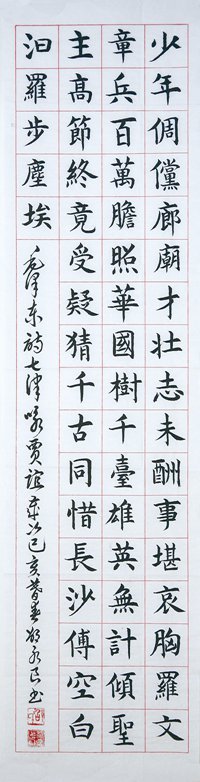 少年倜儻廊廟才壯志未酬事堪哀胸羅文
章兵百萬膽照華國樹千臺雄英無計傾聖
主高節終竟受疑猜千古同惜長沙傅空白
汨羅步塵埃
毛澤東詩七律咏賈誼 己亥暮春 書